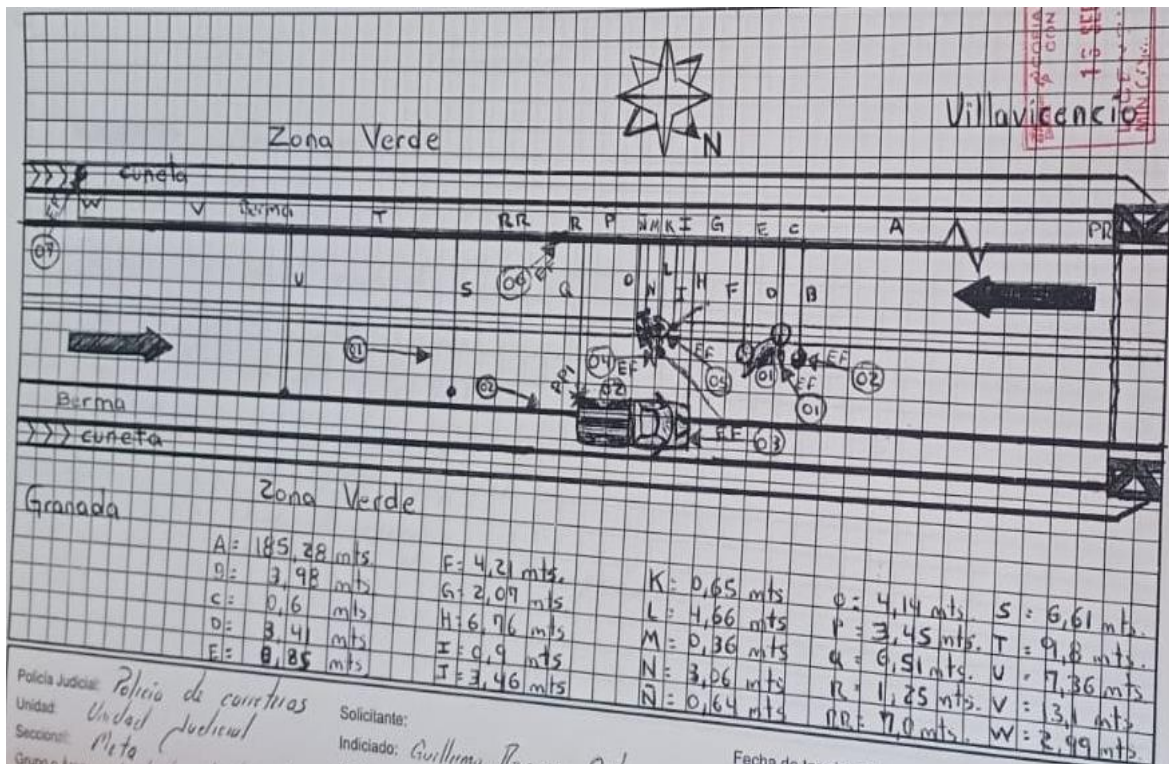 Villavicencio
N
Zona Verde
cuneta
W V Berma T RR R P Ñ M K I G E C A PR
07
U S 09 Q O N L J H F D B
01
04 EF EF 05 01 EF 02
02 EF 01
RP1 02
Berma
EF 03
cuneta
Zona Verde
Granada
A= 185,28 mts
B= 3,98 mts
C= 0,6 mts
D= 3,41 mts
E= 0,85 mts
F= 4,21 mts.
G= 2,07 mts
H= 6,76 mts
I= 0,9 mts
J= 3,46 mts
K= 0,65 mts
L= 4,66 mts
M= 0,36 mts
N= 3,06 mts
Ñ= 0,64 mts
O= 4,14 mts.
P= 3,45 mts.
Q= 6,51 mts.
R= 1,25 mts.
RR= 7,0 mts.
S= 6,61 mts.
T= 9,8 mts.
U= 7,36 mts.
V= 13,1 mts.
W= 2,99 mts.
Policía Judicial: Policia de carreteras
Unidad: Unidad Judicial
Seccional: Meta
Solicitante:
Indiciado: Guillermo